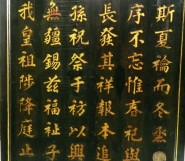 斯夏禴而冬烝
序不忘惟春祀與
長發其祥報本追
孫祝祭于祊以興
無疆錫茲福祉子
我皇祖陟降庭止